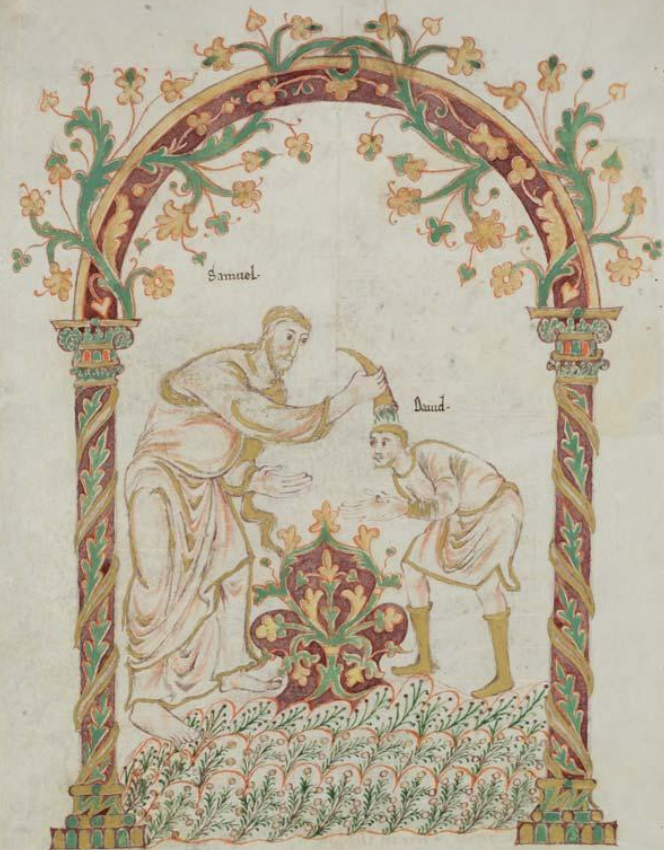 Samuel.
Dauid.